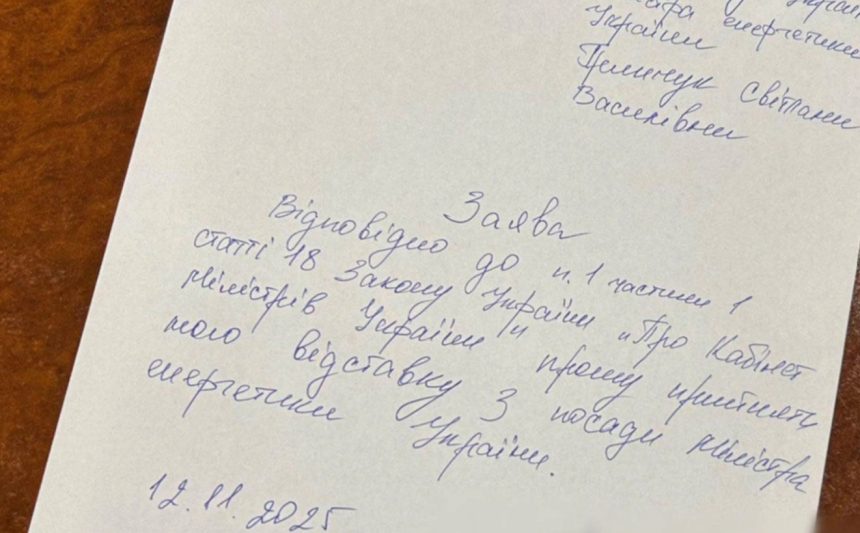 енергетики
України
Гринчук Світлани
Василівни
Заява
Відповідно до п.1 частини 1
статті 18 Закону України "Про Кабінет
Міністрів України" прошу прийняти
мою відставку з посади Міністра
енергетики України.
12.11.2025